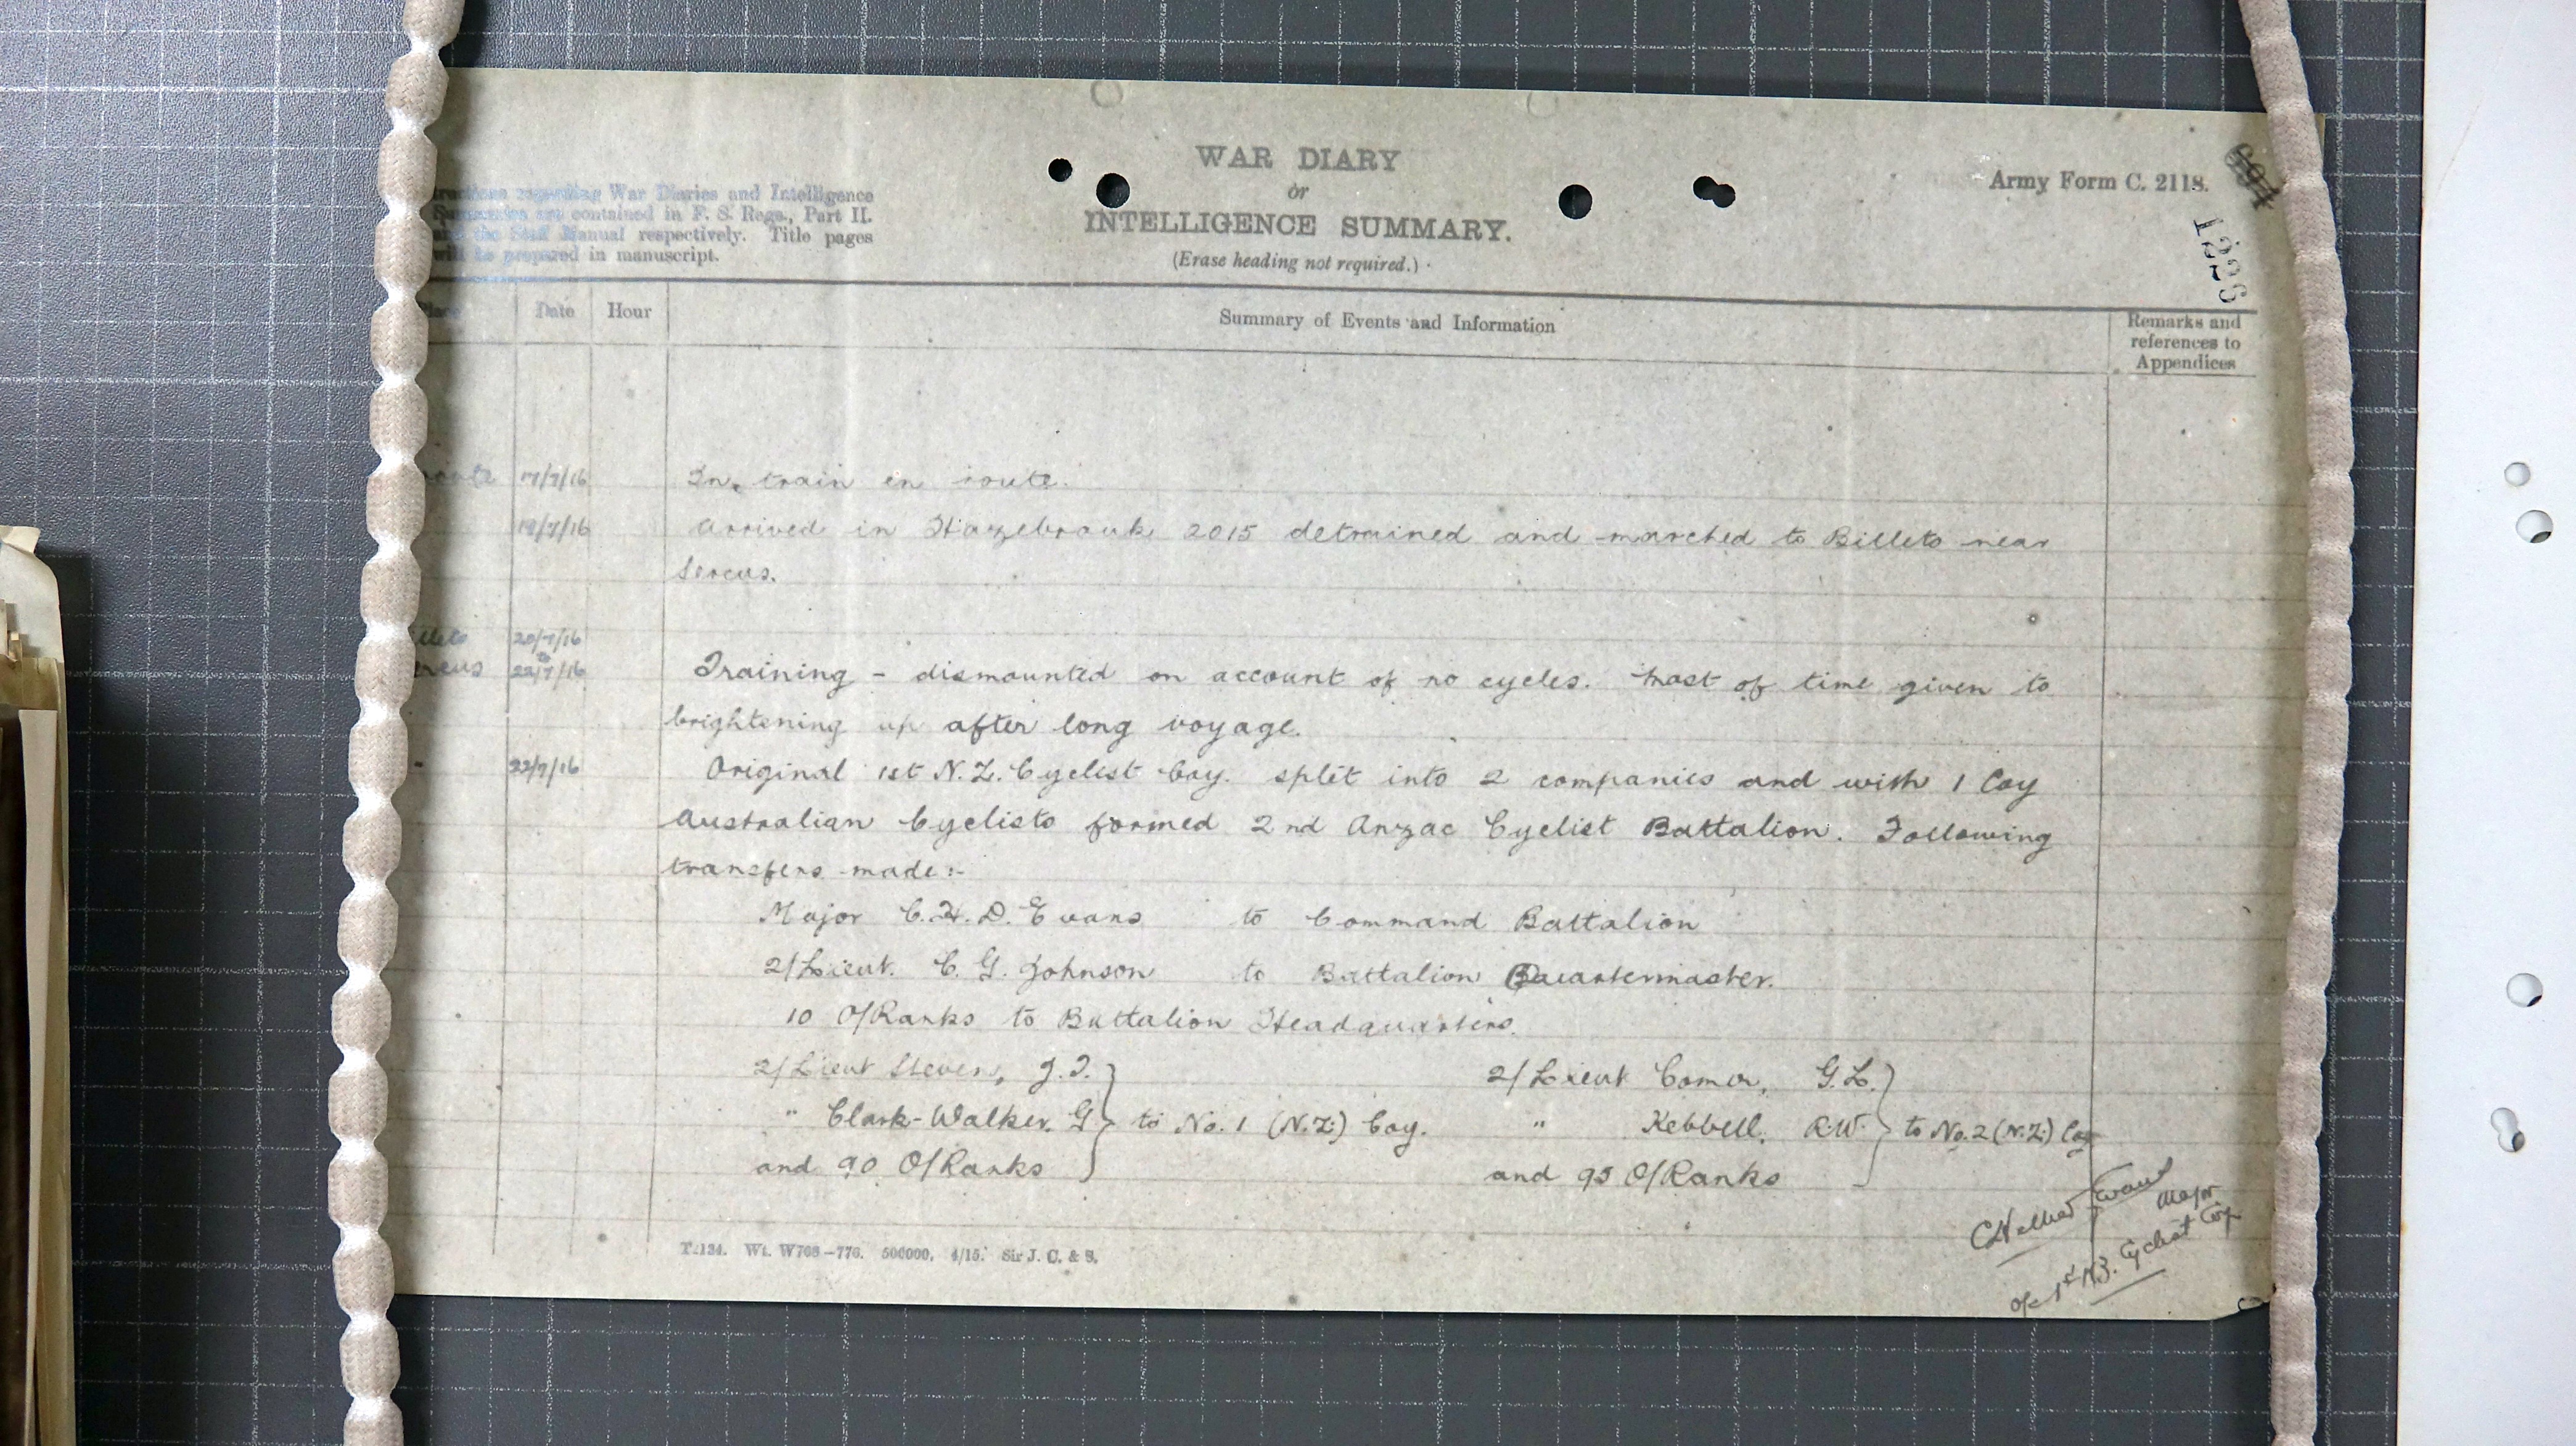 WAR DIARY
or
INTELLIGENCE SUMMARY.
(Erase heading not required.)
Army Form C. 2118.
694
1226
regarding War Diaries and Intelligence
Summaries are contained in F. S. Regs., Part II.
and the Staff Manual respectively. Title pages
will be prepared in manuscript.
Place Date Hour Summary of Events and Information Remarks and
references to
Appendices
17/7/16 In train en route.
19/7/16 Arrived in Hazebrouk 2015 detrained and marched to Billets near
Sercus.
20/7/16
to
22/7/16 Training - dismounted on account of no cycles. Most of time given to
brightening up after long voyage.
22/7/16 Original 1st N.Z. Cyclist Coy. split into 2 companies and with 1 Coy
Australian Cyclists formed 2nd Anzac Cyclist Battalion. Following
transfers made:-
Major C.H.D. Evans to Command Battalion
2/Lieut. C. G. Johnson to Battalion Quartermaster.
10 O/Ranks to Battalion Headquarters.
2/Lieut Steven, J.T. 2/Lieut Comer, G.L.
" Clark-Walker. G to No. 1 (N.Z.) Coy. " Kebbell, R.W. to No. 2 (N.Z.) Coy
and 90 O/Ranks and 95 O/Ranks
Evans
Major
O/c 1st N.Z. Cyclist Coy.
T2134. Wt. W708-776. 500000. 4/15. Sir J. C. & S.